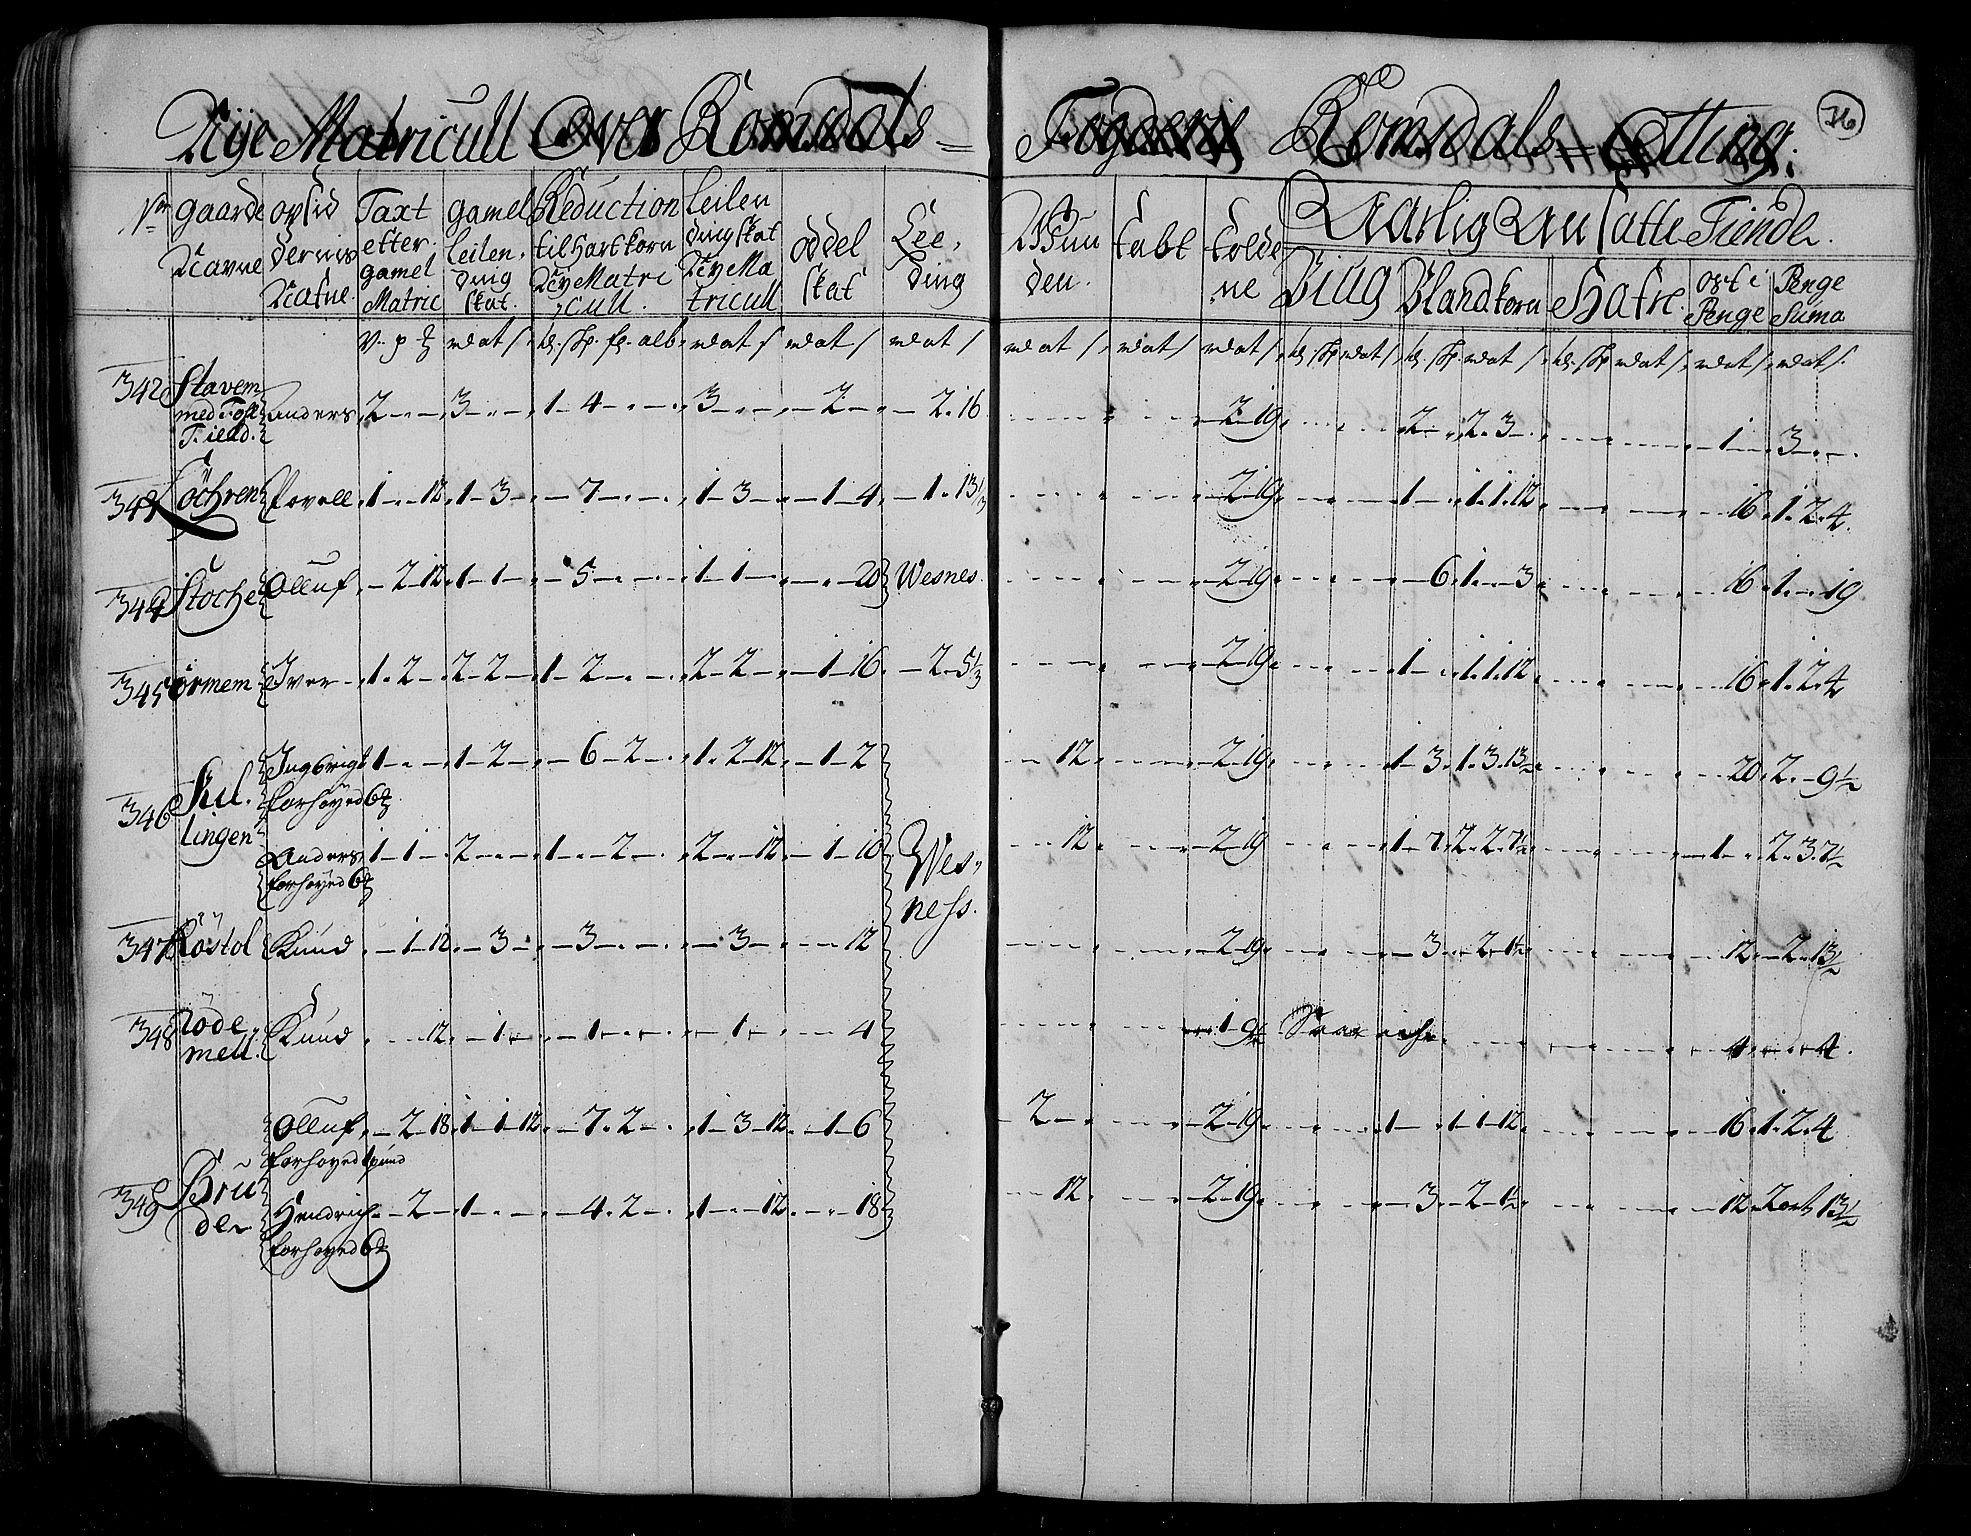 Nÿe Matricull Over Romsdals = Fogderie Romsdals Otting. 36
Nr gaarde Navne
opsid dernis Nafne
Taxt efter gamel Matric
gamel leilen, ding skat.
Reduction til Hartkorn Nÿ Matri cull.
leilen ding skat Nÿ Ma tricull
oddel skat
Lee, ding
Wiun den.
tabt
tolde ne
Aarlig An satte Tiende.
Biug
Blandkorn
Hafre
ost i Penge
Penge Suma
342 Stavem med Toft Tiend. Anders 2 - - 3 - - 1 - 4 - - 3 - - - 2 - - 2 - 16 - - 2 - 19 - - 2 - 2 - 3 - - - 1 - 3 - -
343 Löchren Povell 1 - - 12 1 - 3 - - 7 - - 1 - 3 - - 1 - 4 - 1 - 13 1/3 - - 2 - 19 - - 1 - 1 - 1 - 12 - - 16 1 - 2 - 4
344 Stoche Olluf - 2 - 12 1 - 1 - - 5 - - 1 - 1 - - - 20 Wesnes - - 2 - 19 - - 6 1 - - 3 - - 16 1 - - 19
345 örmem Iver 1 - 2 - 2 - 2 - 1 - 2 - - 2 - 2 - - 1 - 16 - 2 - 5 1/3 - - 2 - 19 - - 1 - 1 - 1 - 12 - - 16 1 - 2 - 4
346 Skil lingen Ingbrigt 1 - - 1 - 2 - - 6 - 2 - 1 - 2 - 12 - 1 - 2 - 12 - - 2 - 19 - - 1 - 3 1 - 3 - 13 1/2 - - 20 2 - - 9 1/2
forhöyed 6
Anders 1 - 1 - 2 - - 1 - - 2 - 2 - - 12 - 1 - 10 Wes, ness. - 12 - - 2 - 19 - - 1 - 7 2 - 2 - 7 1/2 - - 1 - 2 - 3 - 7 1/2
forhöyed 6
347 Röstol Knud - 1 - 12 - 3 - - 3 - - - 3 - - - 12 - - 2 - 19 - - 3 - 2 - 1 1/2 - - 12 - 2 - 13 1/2
348 röde, mell. Knud - - 12 - 1 - - 1 - - - 1 - - - 4 - - 1 - 9 1/2 Saar iche - - 4 - - 4
349 Brü der Olluf - 2 - 18 1 - 1 - 12 - 7 - 2 - 1 - 3 - 12 - 1 - 6 2 - - - 2 - 19 - - 1 - 1 - 1 - 12 - - 16 1 - 2 - 4
forhoyed 1 pund
Hendrich - 2 - 1 - - - 4 - 2 - 1 - - 12 - - 18 - 12 - - 2 - 19 - - 3 - 2 - 1 1/2 - - 12 - 2 ort 13 1/2
forhoyed 6